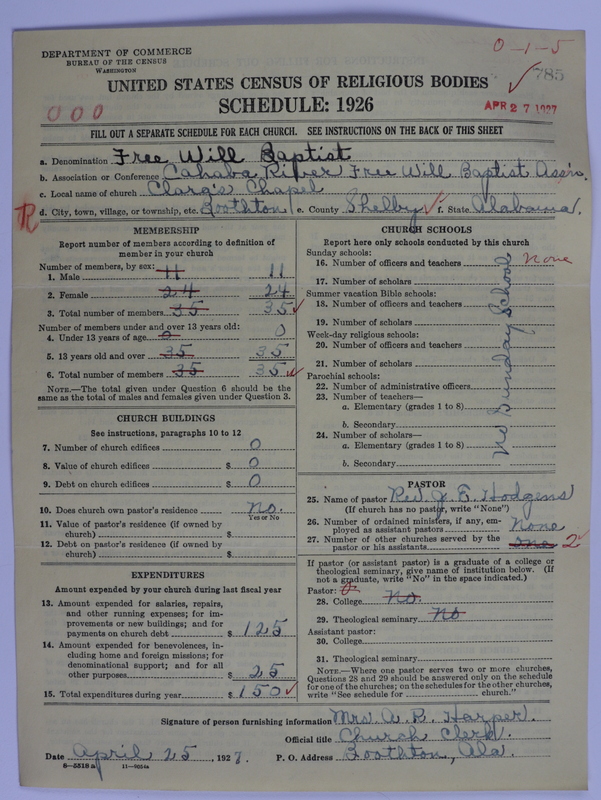 DEPARTMENT OF COMMERCE
BUREAU OF THE CENSUS
WASHINGTON
0-1-5
785
UNITED STATES CENSUS OF RELIGIOUS BODIES
SCHEDULE: 1926
000
APR 27 1927
FILL OUT A SEPARATE SCHEDULE FOR EACH CHURCH. SEE INSTRUCTIONS ON THE BACK OF THIS SHEET
a. Denomination Free Will Baptist
b. Association or Conference Cahaba River Free Will Baptist Ass'n.
c. Local name of church Clarg's Chapel
d. City, town, village, or township, etc. Boothton e. County Shelby f. State Alabama.
R
MEMBERSHIP
Report number of members according to definition of
member in your church
Number of members, by sex:
1. Male 11 11
2. Female 24 24
3. Total number of members 35 35
Number of members under and over 13 years old:
4. Under 13 years of age 0 0
5. 13 years old and over 35 35
6. Total number of members 35 35
NOTE.—The total given under Question 6 should be the
same as the total of males and females given under Question 3.
CHURCH BUILDINGS
See instructions, paragraphs 10 to 12
7. Number of church edifices 0
8. Value of church edifices $ 0
9. Debt on church edifices $ 0
10. Does church own pastor's residence no.
Yes or No
11. Value of pastor's residence (if owned by
church) $
12. Debt on pastor's residence (if owned by
church) $
EXPENDITURES
Amount expended by your church during last fiscal year
13. Amount expended for salaries, repairs,
and other running expenses; for im-
provements or new buildings; and for
payments on church debt $ 125
14. Amount expended for benevolences, in-
cluding home and foreign missions; for
denominational support; and for all
other purposes $ 25
15. Total expenditures during year $ 150
CHURCH SCHOOLS
Report here only schools conducted by this church
Sunday schools:
16. Number of officers and teachers none
17. Number of scholars
Summer vacation Bible schools:
18. Number of officers and teachers
19. Number of scholars
Week-day religious schools:
20. Number of officers and teachers
21. Number of scholars
Parochial schools:
22. Number of administrative officers
23. Number of teachers—
a. Elementary (grades 1 to 8)
b. Secondary
24. Number of scholars—
a. Elementary (grades 1 to 8)
b. Secondary
no Sunday School
PASTOR
25. Name of pastor Rev. J. E. Hodgens
(If church has no pastor, write "None")
26. Number of ordained ministers, if any, em-
ployed as assistant pastors None
27. Number of other churches served by the
pastor or his assistants one 2
If pastor (or assistant pastor) is a graduate of a college or
theological seminary, give name of institution below. (If
not a graduate, write "No" in the space indicated.)
Pastor: 0
28. College No.
29. Theological seminary No
Assistant pastor:
30. College
31. Theological seminary
NOTE.—Where one pastor serves two or more churches,
Questions 28 and 29 should be answered only on the schedule
for one of the churches; on the schedules for the other churches,
write "See schedule for church."
Signature of person furnishing information Mrs. A. R. Harper.
Official title Church Clerk.
Date April 25, 1927. P. O. Address Boothton, Ala.
8-5518a 11-9054a